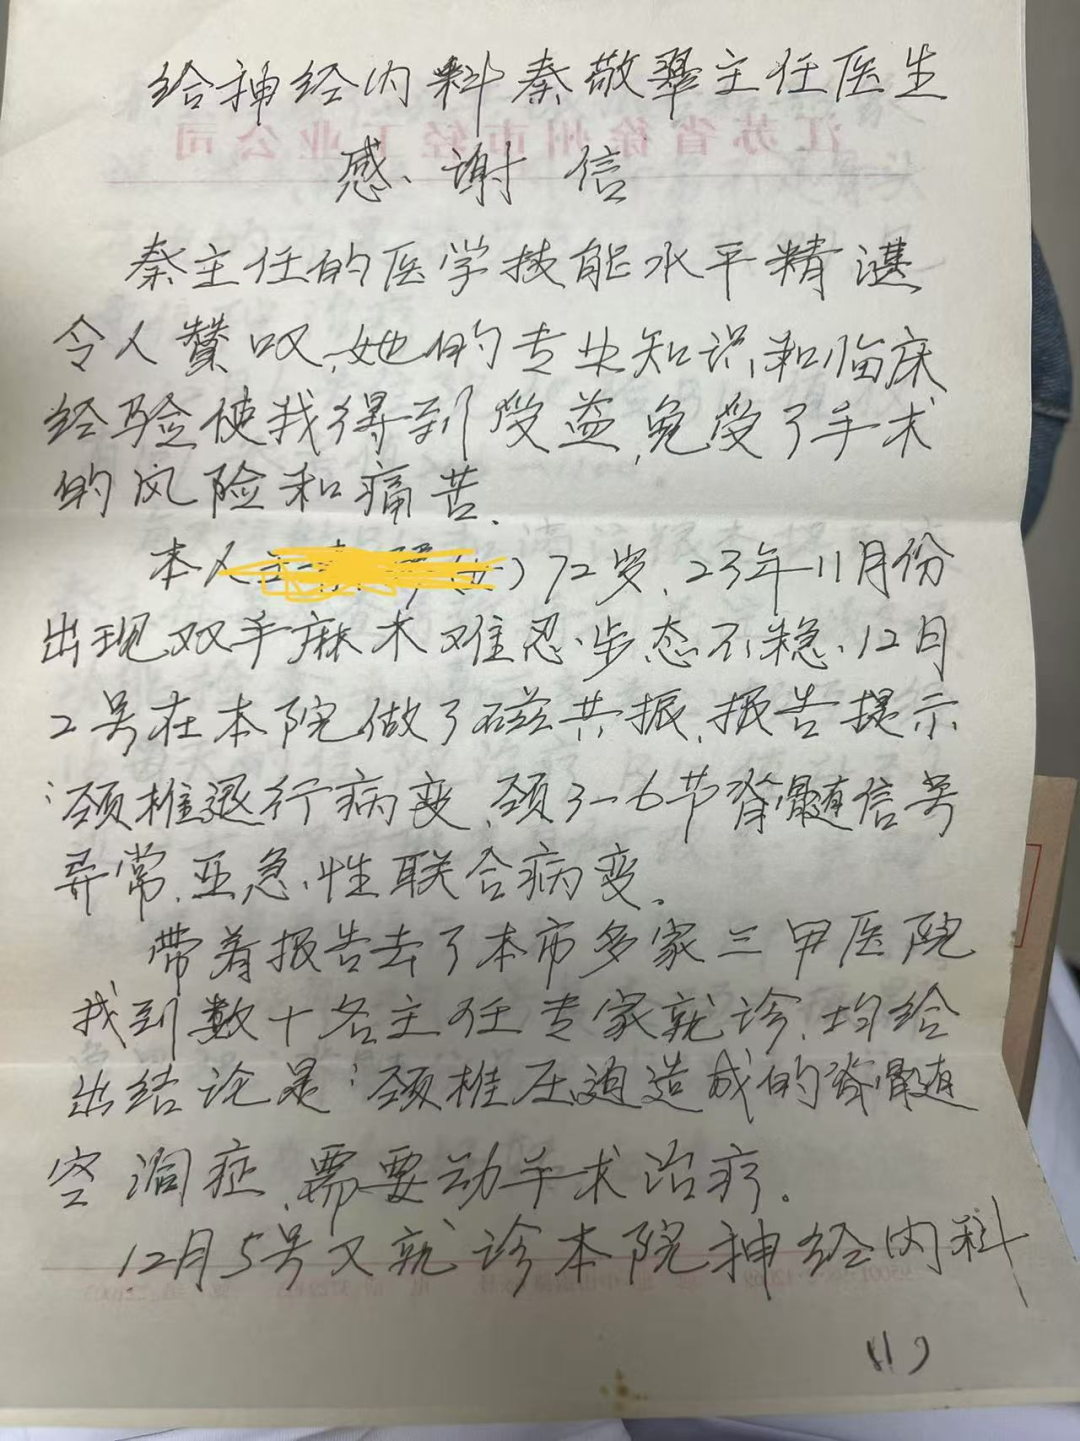 给神经内科秦敬翠主任医生
江苏省徐州市轻工业公司
感谢信
秦主任的医学技能水平精湛
令人赞叹、她的专业知识和临床
经验使我得到受益,免受了手术
的风险和痛苦.
本人(女)72岁、23年11月份
出现双手麻木难忍、步态不稳、12月
2号在本院做了磁共振、报告提示
:颈椎退行病变、颈3-6节脊髓信号
异常、亚急性联合病变.
带着报告去了本市多家三甲医院
找到数十名主任专家就诊、均给
出结论是:颈椎压迫造成的脊髓
空洞症、需要动手术治疗。
12月5号又就诊本院神经内科
(1)